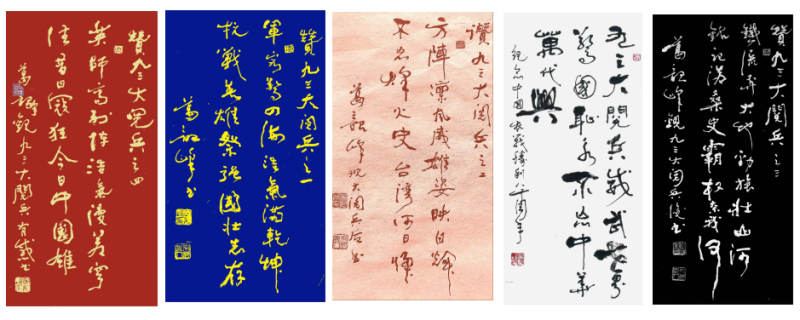 贊九三大閱兵之四
英師高列陣浩氣漫蒼穹
往昔日寇狂今日中國雄
萬韶峰觀九三大閱兵有感書
贊九三大閱兵之一
軍容驚四海浩氣滿乾坤
抗戰英雄祭強國壯志存
萬韶峰書
讚九三大閱兵之二
方陣凜風威雄姿映日輝
不忘烽火史台灣何日歸
萬韶峰觀大閱兵后書
九三大閱兵
驚國恥永不忘中華
萬代興
紀念中國抗戰勝利八十周年
贊九三大閱兵之三
鐵流奔大地勁旅壯山河
銘記滄桑史霸权奈我何
萬韶峰觀九三大閱兵後書